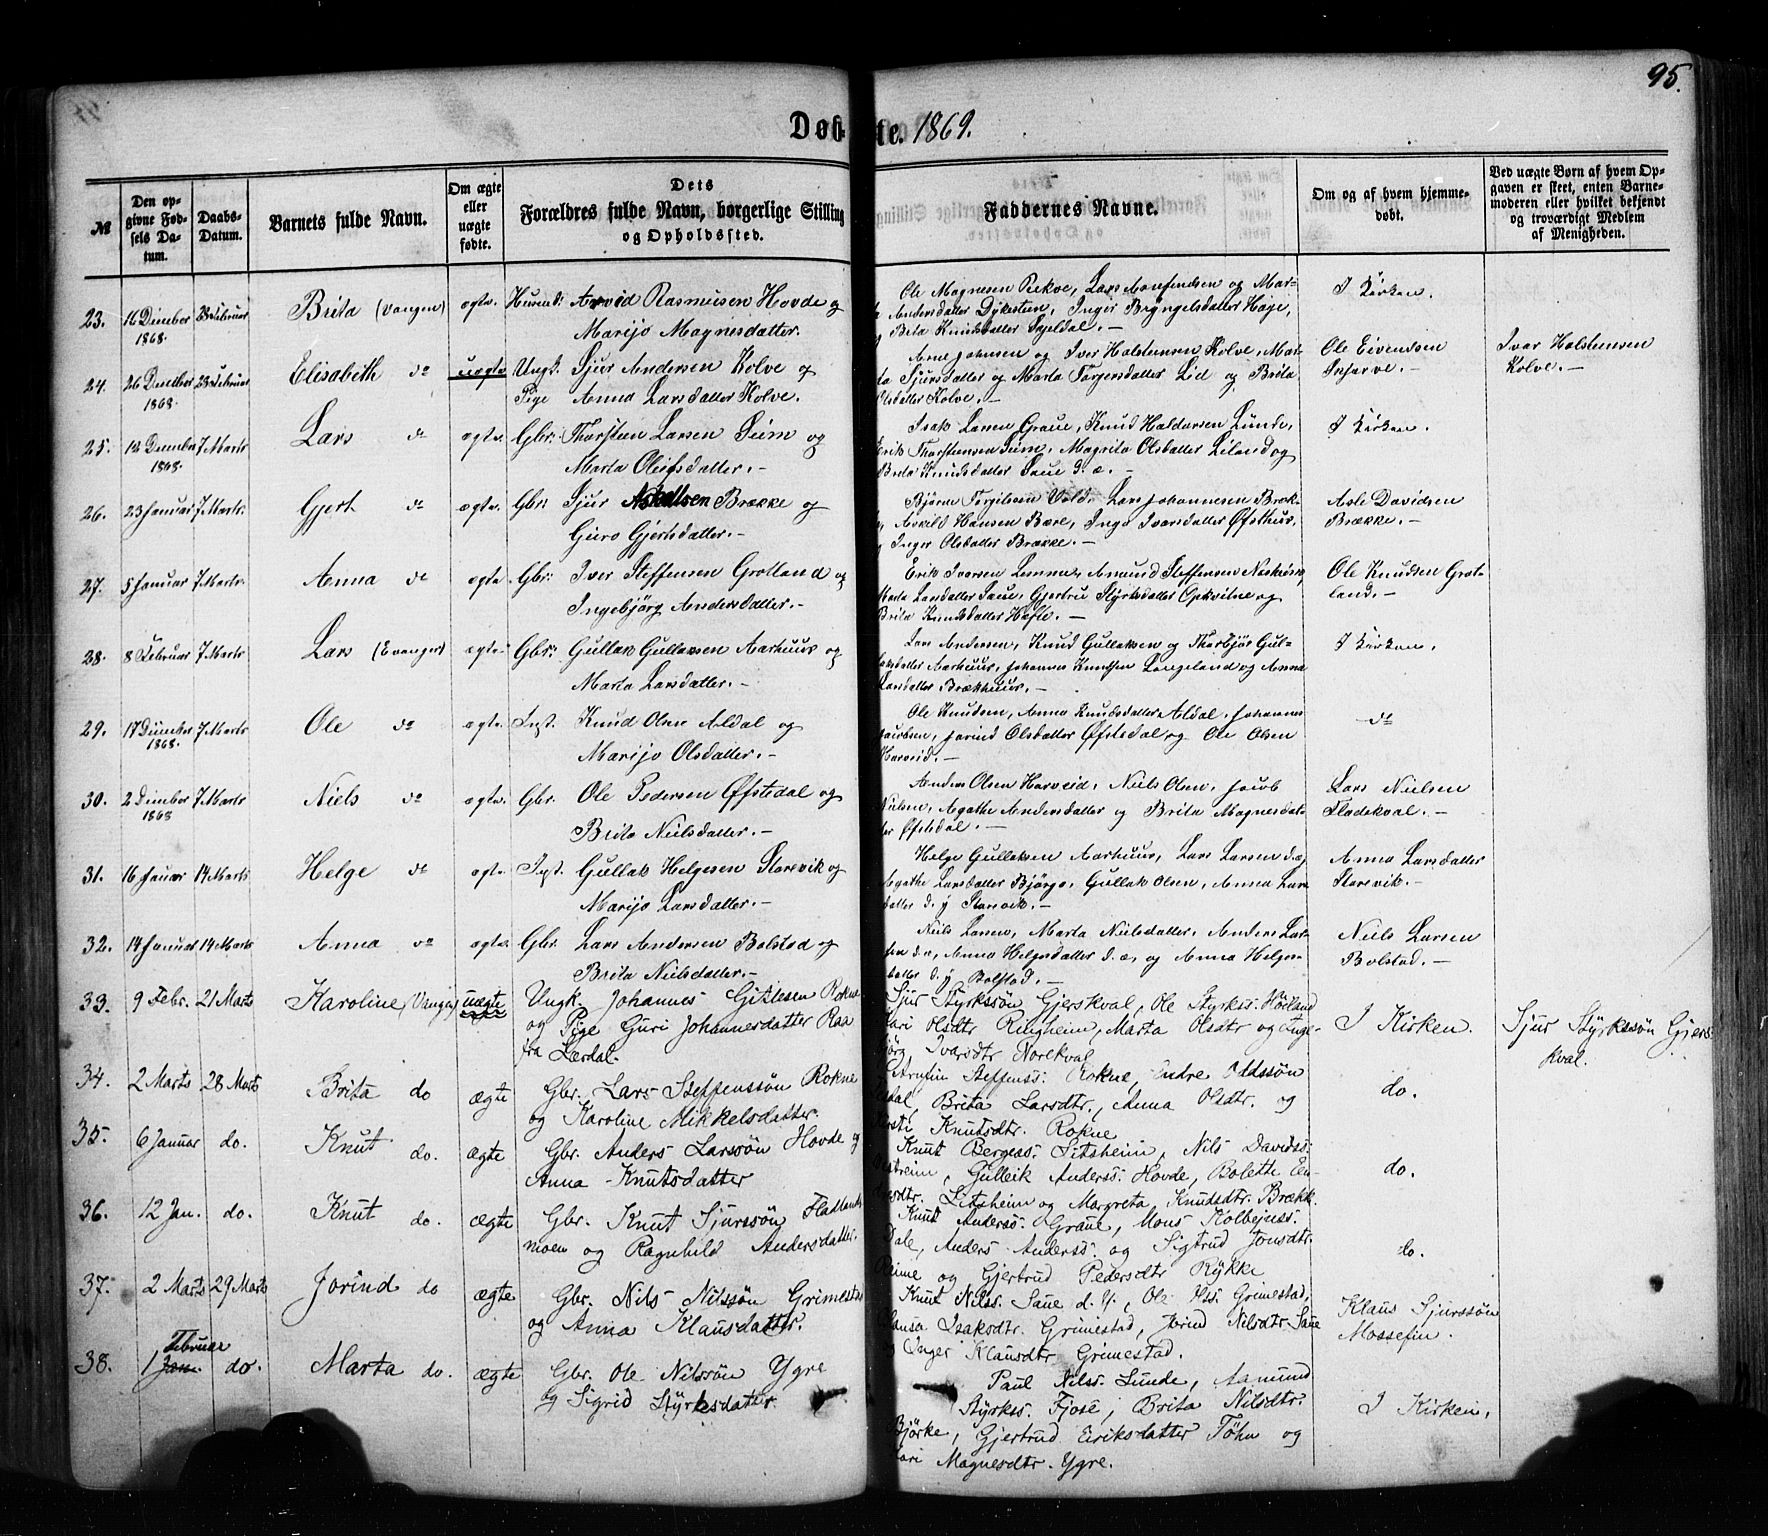 95.
Døbte. 1869.
№
Den opgivne Fødsels Datum.
Daabs-Datum.
Barnets fulde Navn.
Om ægte eller uægte fødte.
Dets Forældres fulde Navn, borgerlige Stilling og Opholdssted.
Faddernes Navne.
Om og af hvem hjemmedøbt.
Ved uægte Børn af hvem Opgaven er skeet, enten Barnemoderen eller hvilket bekjendt og troværdigt Medlem af Menigheden.
23. 16 1868. Brita (Vangen) ægte. Arvid Rasmusen Hovde og
Marijo Magnesdatter.
Ole Magnesen Rekve, Lars og Mar-
Andersdatter Dykesten, Inger Bryngelsdatter
Brita Knudsdatter Skjeldal. —
I Kirken.
24. 26 1868. Elisabeth do uægte Ungk. Sjur Andersen Kolve og
Pige Anna Larsdatter Kolve.
Arne Johnsen og Iver Holstensen Kolve, Mar-
ta Sjursdatter og Marta Torgersdatter Lid og Brita
Olsdatter Kolve. —
Ole Eivendsen
Skjerve. —
Ivar Holstensen
Kolve. —
25. 1868. 7 Marts Lars do ægte. Gbr: Thorstein Larsen Seim og
Marta Oleifsdatter. —
Isak Larsen Graue, Knud Haldorsen Lunde,
Erik Thorstensen Seim, Magrita Olsdatter Liland og
Brita Knudsdatter Saue d. æ. —
I Kirken.
26. 23 Januar 7 Marts. Gjert do ægte. Gbr: Sjur Askeldsen Brække og
Guro Gjertsdatter. —
Bjørne Torgilsen Vold, Lars Johannesen Bræk-
Askild Hansen Bære, Inga Ivarsdatter Øfsthus,
Inger Olsdatter Brække. —
Asle Davidsen
Brække. —
27. 5 Januar 7 Marts. Anna do ægte Gbr: Iver Steffensen Grotland og
Ingebjørg Andersdatter. —
Erik Iversen Lemme, Amund Steffensen
Marta Larsdatter Saue, Gjertru Styrksdatter Opkvitne og
Brita Knudsdatter Hæfte. —
Ole Knudsen Grot-
land. —
28. 8 Februar 7 Marts Lars (Evanger) ægte. Gbr: Gullak Gullaksen Aarhuus og
Marta Larsdatter. —
Lars Andersen, Knud Gullaksen og Thorbjør Gul-
laksdatter Aarhuus, Johannes Knudsen Langeland og Anna
Larsdatter Brækhuus. —
I Kirken.
29. 17 1868. 7 Marts Ole do ægte. Inst. Knud Olsen Aldal og
Marijo Olsdatter. —
Ole Knudsen, Anna Knudsdatter Aldal, Johannes
Jacobsen, Jorind Olsdatter Øfstedal og Ole Olsen
Horveid. —
do
30. 2 1868 7 Marts Niels do ægte. Gbr. Ole Pedersen Øfstedal og
Brita Nielsdatter. —
Anders Olsen Horveid, Niels Olsen, Jacob
Nielsen, Agathe Andersdatter og Brita Magnesdat-
ter Øfstedal. —
Lars Nielsen
Fladekval. —
31. 16 Januar 14 Marts Helge do ægte. Inst. Gullak Helgesen Storevik og
Marijo Larsdatter. —
Helge Gullaksen Aarhuus, Lars Larsen d. æ,
Agathe Larsdatter Bjørgo, Gullak Olsen, Anna Lars-
datter d. y Storevik. —
Anna Larsdatter
Storevik. —
32. 14 Januar 14 Marts Anna do ægte. Gbr. Lars Andersen Bolstad og
Brita Nielsdatter. —
Niels Larsen, Marta Nielsdatter, Anders Lar-
sen d. æ, Anna Helgesdatter d. æ, og Anna Helges-
datter d. y Bolstad. —
Niels Larsen
Bolstad. —
33. 9 Febr. 21 Marts Karoline (Vangen) uægte Ungk. Johannes Gitlesen Rokne
og Pige Guri Johannesdatter Raa
fra Lærdal.
Sjur Styrkssøn Gjerskval, Ole Styrkss. Hæland
Kari Olsdtr Ringheim, Marta Olsdtr og Inge-
bjørg Ivarsdtr Norekval
I Kirken.
Sjur Styrkssøn Gjers-
kval.
34. 2 Marts 28 Marts Brita do ægte Gbr. Lars Steffenssøn Rokne
og Karoline Mikkelsdatter.
Steffenss. Rokne, Endre Oddssøn
Brita Larsdtr., Anna Olsdtr. og
Kirsti Knutsdtr. Rokne
do.
35. 6 Januar do. Knut do. ægte Gbr. Anders Larssøn Hovde og
Anna Knutsdatter
Knut Bergess: Sitsheim, Nils Davidss:
Gulleik Anderss: Hovde, Bolette En-
dresdtr. Litsheim og Margreta Knudsdtr. Brækk.
do.
36. 12 Jan. do. Knut do. ægte Gbr. Knut Sjurssøn Flatlands-
moen og Ragnhild Andersdatter.
Knut Anderss. Graue, Mons Kolbejnss.
Dale, Anders Anderss. og Sigtrud Jonsdtr.
Reime og Gjertrud Pedersdtr Rykke
do.
37. 2 Marts 29 Marts Jorind do ægte Gbr. Nils Nilssøn Grimestad
og Anna Klausdatter.
Knut Nilss. Saue d. y., Ole Olss. Grimestad,
Isaksdtr. Grimestad, Jorind Nilsdtr. Saue
og Inger Klausdtr Grimestad.
Klaus Sjurssøn
Mossefin.
38. 1 Februar do. Marta do. ægte Gbr. Ole Nilssøn Ygre
og Sigrid Styrksdatter.
Paul Nilss. Lunde, Aamund
Styrkss. Fjose, Brita Nilsdtr.
Bjørke, Gjertrud Eiriksdatter Tøhn og
Kari Magnesdtr. Ygre.
I Kirken.